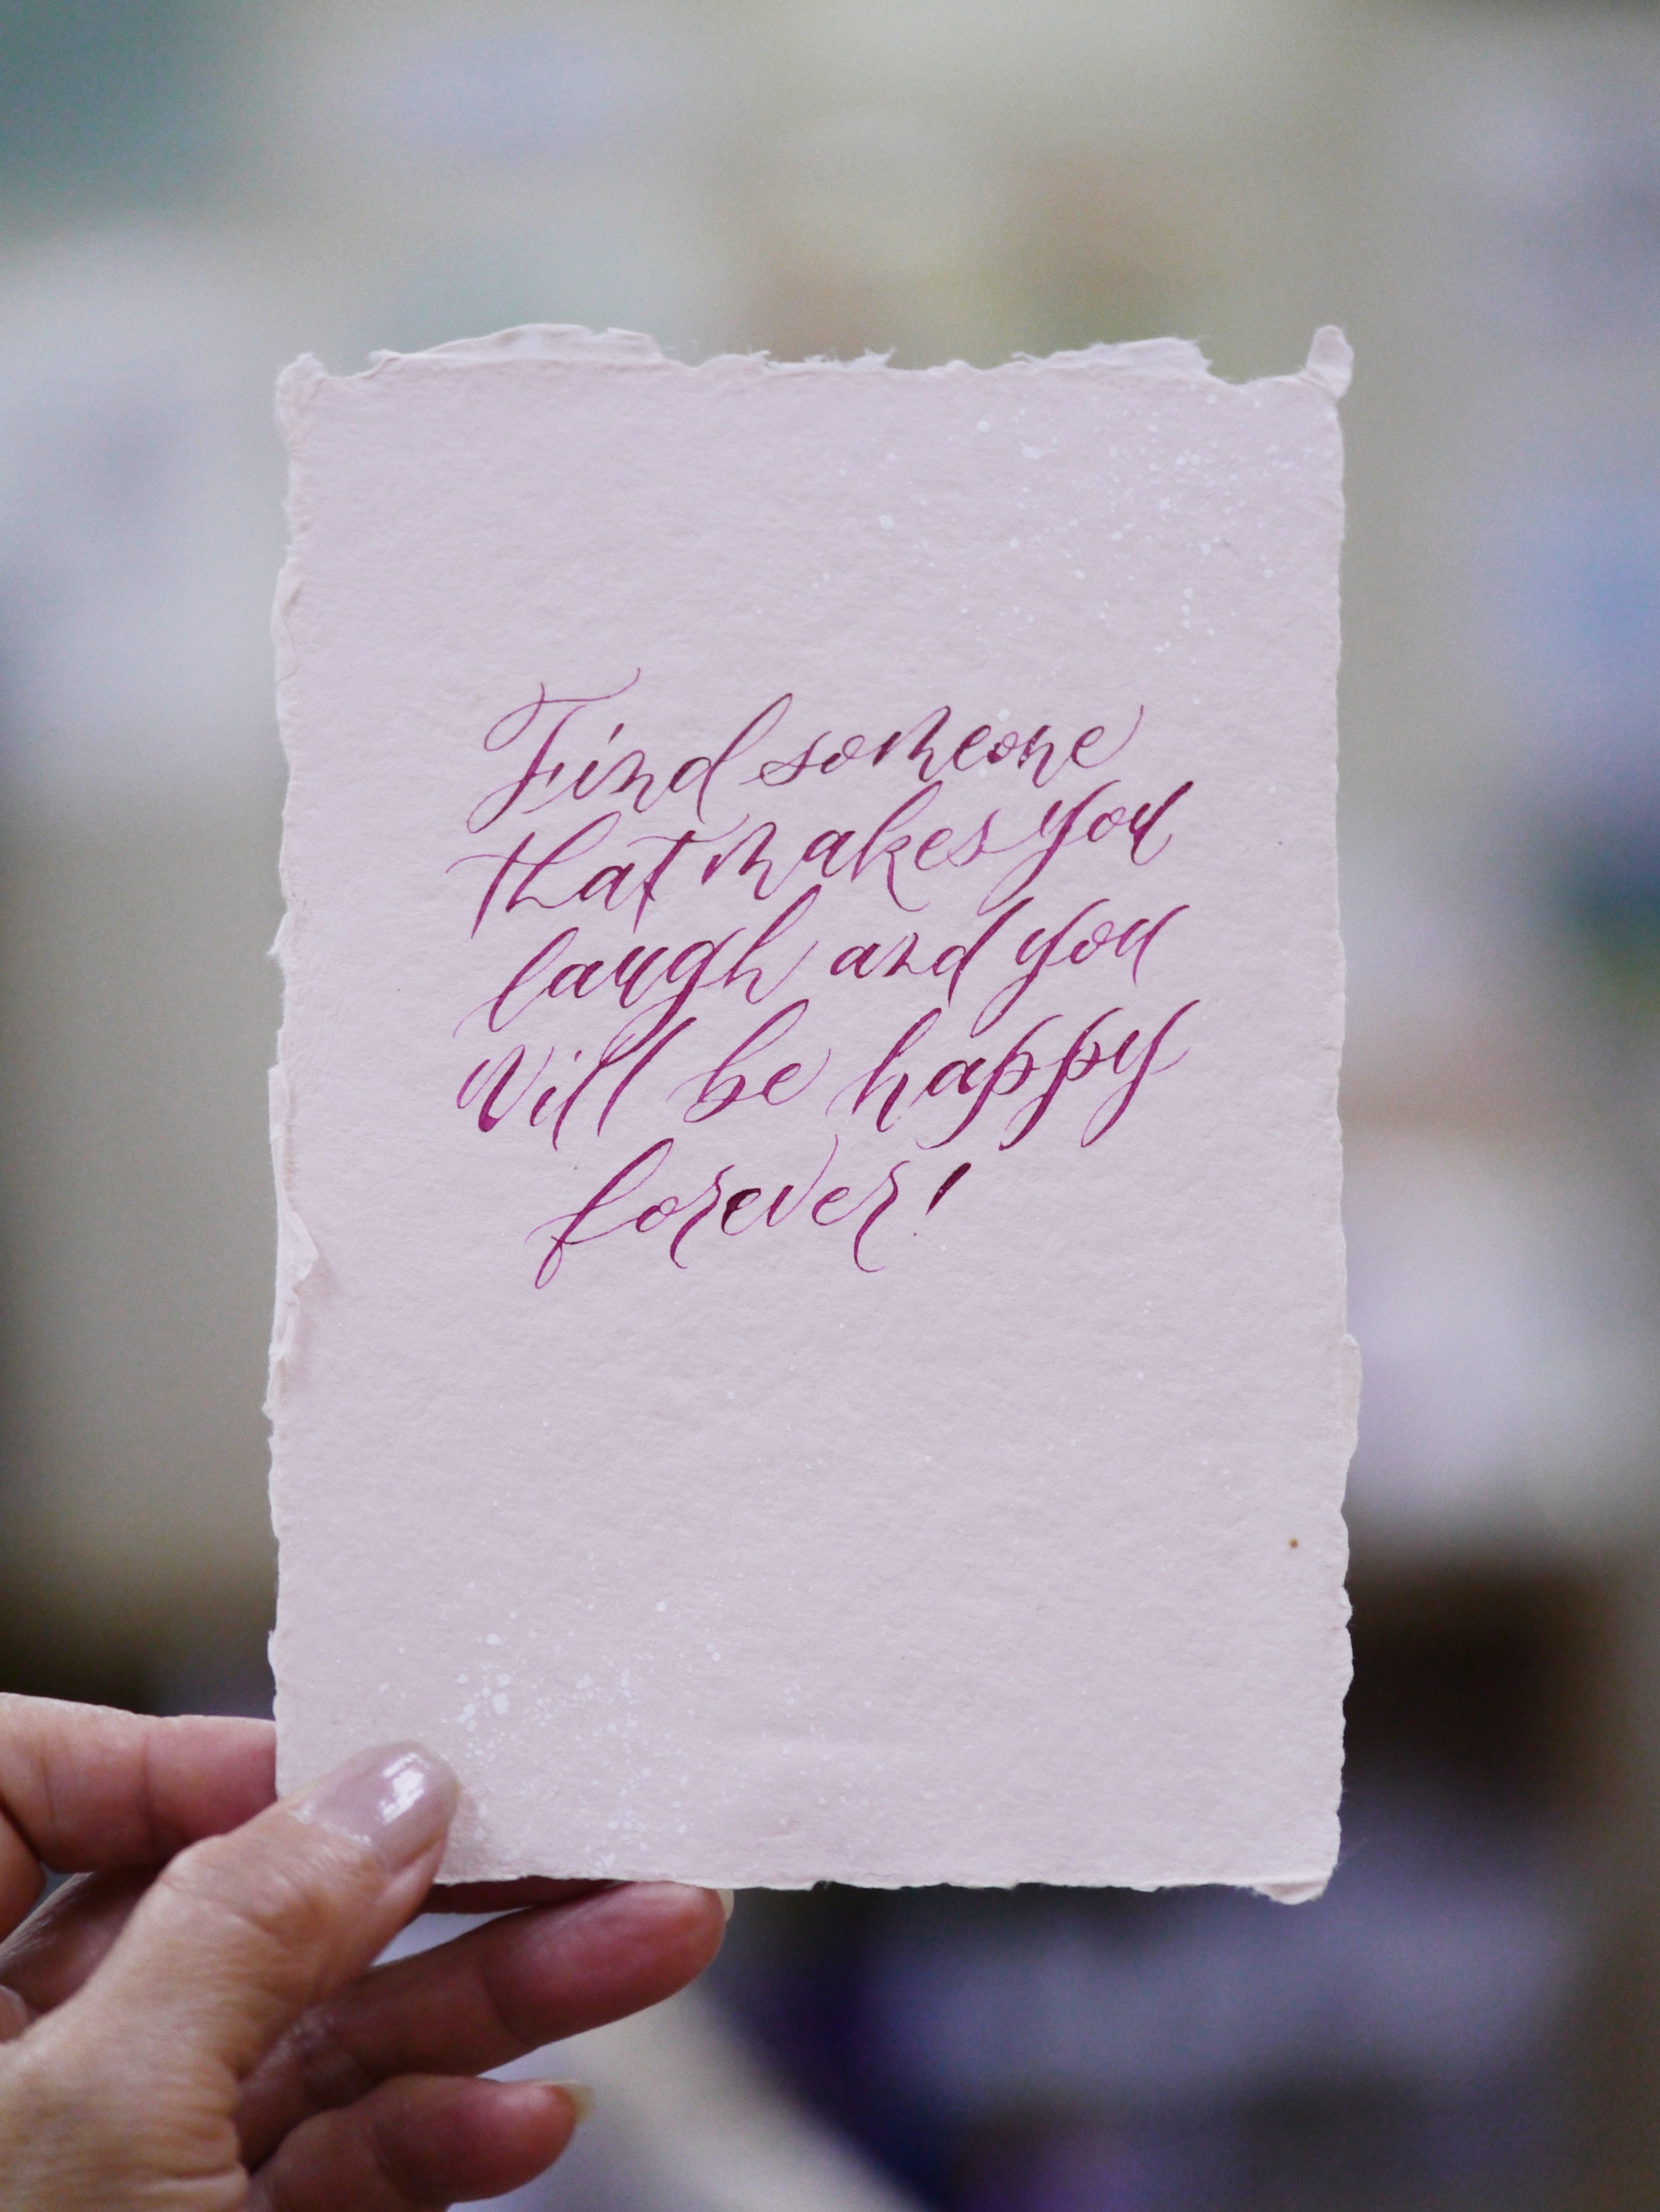 Find someone
that makes you
laugh and you
Will be happy
forever!